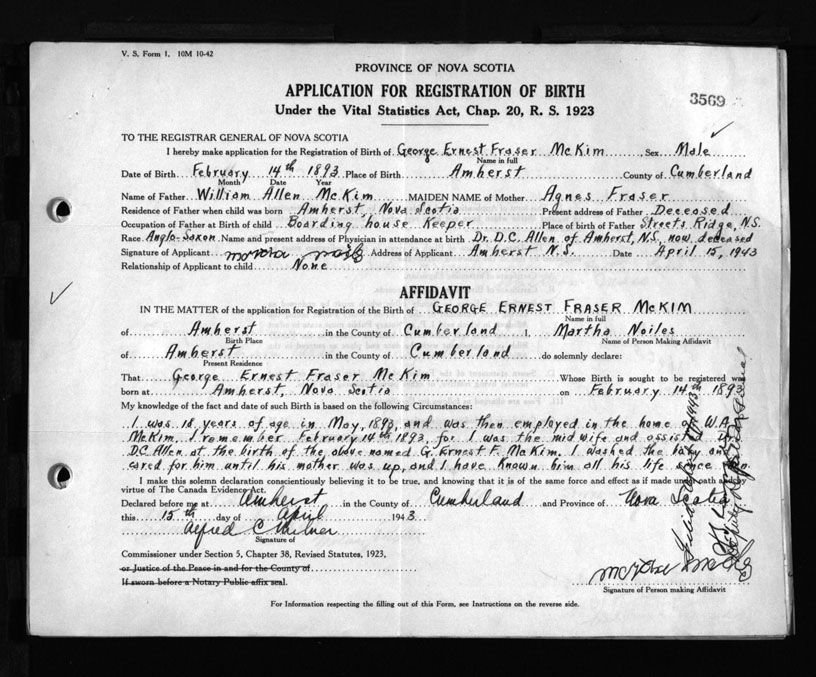 V. S. Form 1. 10M 10-42
PROVINCE OF NOVA SCOTIA
APPLICATION FOR REGISTRATION OF BIRTH
3569
Under the Vital Statistics Act, Chap. 20, R. S. 1923
TO THE REGISTRAR GENERAL OF NOVA SCOTIA
I hereby make application for the Registration of Birth of George Ernest Fraser McKim Sex Male
Name in full
Date of Birth February 14th 1893 Place of Birth Amherst County of Cumberland
Month Date Year
Name of Father William Allen McKim MAIDEN NAME of Mother Agnes Fraser
Residence of Father when child was born Amherst, Nova Scotia Present address of Father Deceased
Occupation of Father at Birth of child Boarding house Keeper Place of birth of Father Streets Ridge, N.S.
Race Anglo-Saxon Name and present address of Physician in attendance at birth Dr. D.C. Allen of Amherst, N.S, now deceased
Signature of Applicant Address of Applicant Amherst N.S. Date April 15, 1943
Relationship of Applicant to child None
AFFIDAVIT
IN THE MATTER of the application for Registration of the Birth of GEORGE ERNEST FRASER McKIM
Name in full
of Amherst in the County of Cumberland I, Martha Noiles
Birth Place Name of Person Making Affidavit
of Amherst in the County of Cumberland do solemnly declare:
Present Residence
That George Ernest Fraser McKim Whose Birth is sought to be registered was
born at Amherst, Nova Scotia on February 14th 1893
My knowledge of the fact and date of such Birth is based on the following Circumstances:
I was 18 years of age in May, 1893, and was then employed in the home of W.A.
McKim. I remember February 14th 1893, for I was the mid wife and assisted
D.C. Allen at the birth of the above named G. Ernest F. McKim. I washed the baby and
cared for him until his mother was up, and I have known him all his life since
I make this solemn declaration conscientiously believing it to be true, and knowing that it is of the same force and effect as if made under oath
virtue of The Canada Evidence Act.
Declared before me at Amherst in the County of Cumberland and Province of Nova Scotia
this 15th day of April 1943
Alfred C Milner
Signature of
Commissioner under Section 5, Chapter 38, Revised Statutes, 1923,
or Justice of the Peace in and for the County of
If sworn before a Notary Public affix seal.
Signature of Person making Affidavit
For Information respecting the filling out of this Form, see Instructions on the reverse side.